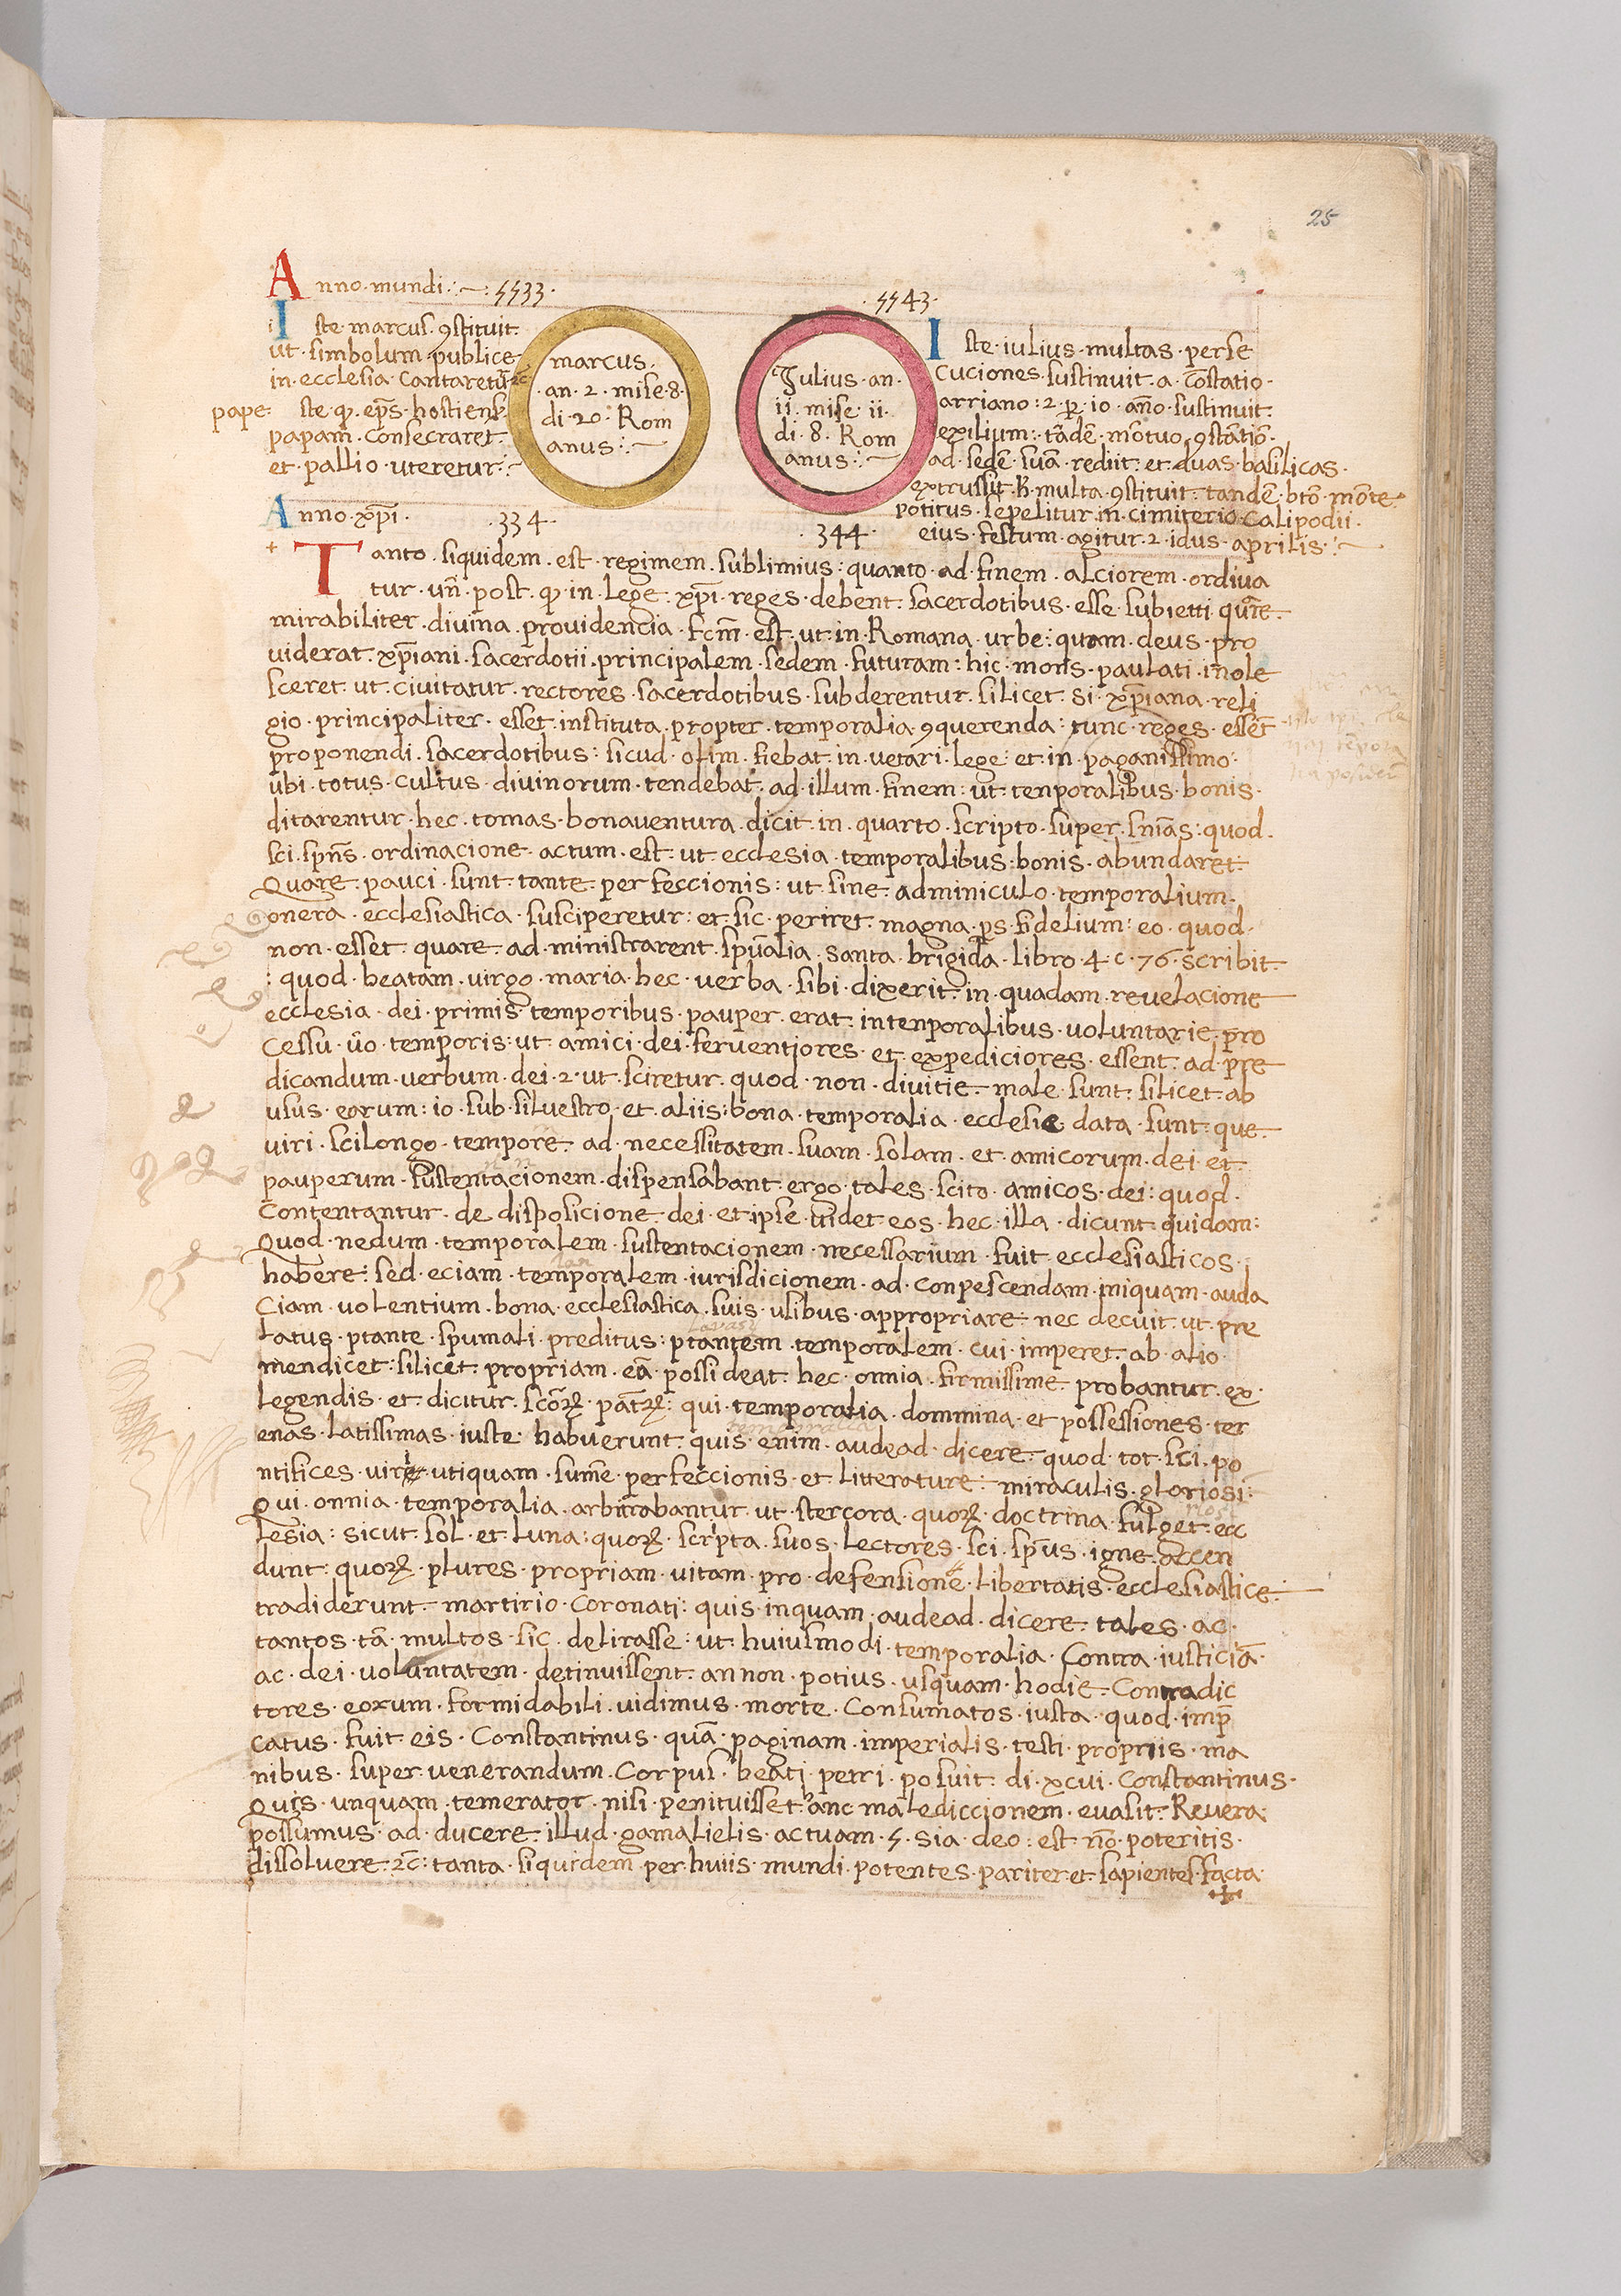 25
Anno·mundi:~:5533·
·5543·
Iste·marcus·9stituit·
ut·simbolum·publice
in·ecclesia·cantaretur̄·2c̄
pape· ste·qp·ep̄s·hostiens̄·
papam̄·consecraret·
et·pallio·uteretur:~
marcus·
·an·2·mise·8·
di·20·Rom
anus:~
Julius·an·
ii·mise·ii·
di·8·Rom
anus:~
Iste·iulius·multas·perse
cuciones·sustinuit·a·c̄ostatio·
arriano:2·p̱·io·an̄o·sustinuit·
exilium:·tādē·mōtuo·9stātiō·
ad·sedē·suā·rediit·et·duas·basilicas·
extrussit·h̄·multa·9stituit·tandē·btō·mōte·
potitus·sepelitur·in·cimiterio·calipodii·
eius·festum·agitur·2·idus·aprilis:~
Anno·xp̄i·
·334·
·344·
Tanto·siquidem·est·regimem·sublimius:quanto·ad·finem·alciorem·ordiua
tur·vn̄·post·qp·in·lege·xp̄i·reges·debent·sacerdotibus·esse·subietti·qu̅re·
mirabiliter·divina·providencia·fcm̄·est·ut·in·Romana·urbe:quam·deus·pro
viderat·xp̄iani·sacerdotii·principalem·sedem·futuram:hic·mors·paulati·inole
sceret·ut·civitatur·rectores·sacerdotibus·subderentur·silicet·si·xp̄iana·reli
gio·principaliter·esset·instituta·propter·temporalia·9querenda:tunc·reges·essēt
proponendi·sacerdotibus:sicud·olim·fiebat·in·vetari·lege·et·in·paganissimo·
ubi·totus·cultus·divinorum·tendebat·ad·illum·finem:ut·tenporalibus·bonis·
ditarentur·hec·tomas·bonaventura·dicit·in·quarto·scripto·super·sniās:quod·
sci·spn̄s·ordinacione·actum·est·ut·ecclesia·temporalibus:bonis·abundaret·
Quare·pauci·sunt·tante·perfeccionis:ut·sine·adminiculo·temporalium·
onera·ecclesiastica·susciperetur:et·sic·periret·magna·ps·fidelium:eo·quod·
non·esset·quare·ad·ministrarent·spūalia·santa·brigida·libro·4·c·76·scribit·
:quod·beatam·virgo·maria·hec·verba·sibi·dixerit·in·quadam·revelacione
ecclesia·dei·primis·temporibus·pauper·erat·intenporalibus·voluntarie·pro
cessu·ūo·temporis:ut·amici·dei·ferventiores·et·expediciores·essent·ad·pre
dicandum·verbum·dei·2·ut·sciretur·quod·non·divitie·male·sunt·silicet·ab
usus·eorum:io·sub·silvestro·et·aliis:bona·temporalia·ecclesie·data·sunt·que·
viri·scilongo·tempore·ad·necessitatem·suam·solam·et·amicorum·dei·et·
pauperum·sustentacionem·dispensabant·ergo·tales·scito·amicos·dei:quod·
contentantur·de·disposicione·dei·et·ipse·videt·eos·hec·illa·dicunt·quidam:
Quod·nedum·temporalem·sustentacionem·necessarium·fuit·ecclesiasticos·
habere:sed·eciam·temporalem·iurisdicionem·ad·conpescendam·iniquam·auda
ciam·volentium·bona·ecclesiastica·suis·usibus·appropriare·nec·decuit·ut·pre
latus·ptante·spumali·preditus:ptantem·temporalem·cui·imperet·ab·alio·
mendicet:silicet·propriam·eā·possideat·hec·omnia·firmissime·probantur·ex·
legendis·et·dicitur·scōꝝ·patꝝ:qui·temporalia·dommina·et·possessiones·ter
enas·latissimas·iuste·habuerunt·quis·enim·audead·dicere·quod·tot·sci·po
ntifices·viri·utiquam·sum̄e·perfeccionis·et·litterature:miraculis·gloriosi:
Qui·onnia·temporalia·arbitrabantur·ut·stercora·quoꝝ·doctrina·fulget·ecc
lesia:sicut·sol·et·luna:quoꝝ·scripta·suos·lectores·sci·sp̄us·igne·accen
dunt:quoꝝ·plures·propriam·vitam·pro·defensione·libertatis·ecclesiastice·
tradiderunt·martirio·coronati:quis·inquam·audead·dicere·tales·ac·
tantos·tā·multos·sic·delirasse:ut·huiusmodi·temporalia·contra·iusticiā·
ac·dei·voluntatem·detinuissent·an·non·potius·usquam·hodie·contradic
tores·eorum·formidabili·vidimus·morte·consumatos·iusta·quod·imp̄
catus·fuit·eis·Constantinus·quā·paginam·imperialis·testi·propriis·ma
nibus·super·venerandum·corpus·beati·petri·posuit·di·xcvi·Constantinus·
Quis·unquam·temerator·nisi·penituisset·anc·malediccionem·evasit·Revera
possumus·ad·ducere·illud·gamalielis·actuam·5·sia·deo:est·nō·poteritis·
dissolvere·2c̄:tanta·siquidem·per·huiis·mundi·potentes·pariter·et·sapientes·facta·